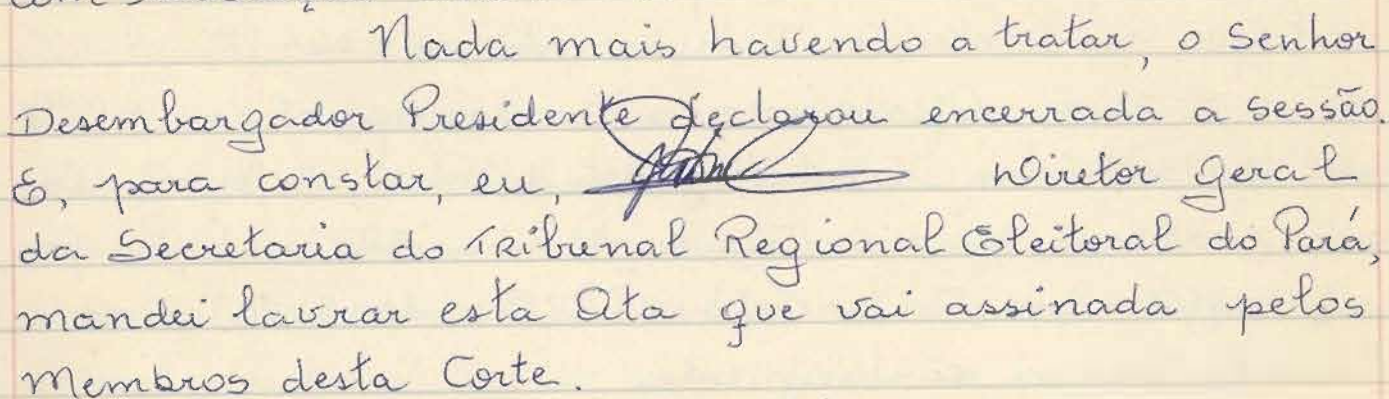 Nada mais havendo a tratar, o Senhor
Desembargador Presidente declarou encerrada a sessão.
E, para constar, eu, Diretor Geral
da Secretaria do Tribunal Regional Eleitoral do Pará,
mandei lavrar esta Ata que vai assinada pelos
Membros desta Corte.